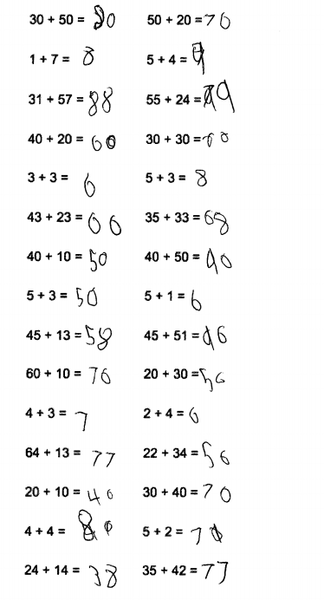 30 + 50 = 80 50 + 20 = 70
1 + 7 = 8 5 + 4 = 9
31 + 57 = 88 55 + 24 = 79
40 + 20 = 60 30 + 30 = 60
3 + 3 = 6 5 + 3 = 8
43 + 23 = 66 35 + 33 = 68
40 + 10 = 50 40 + 50 = 90
5 + 3 = 50 5 + 1 = 6
45 + 13 = 58 45 + 51 = 96
60 + 10 = 70 20 + 30 = 50
4 + 3 = 7 2 + 4 = 6
64 + 13 = 77 22 + 34 = 56
20 + 10 = 40 30 + 40 = 70
4 + 4 = 5 + 2 =
24 + 14 = 38 35 + 42 = 77